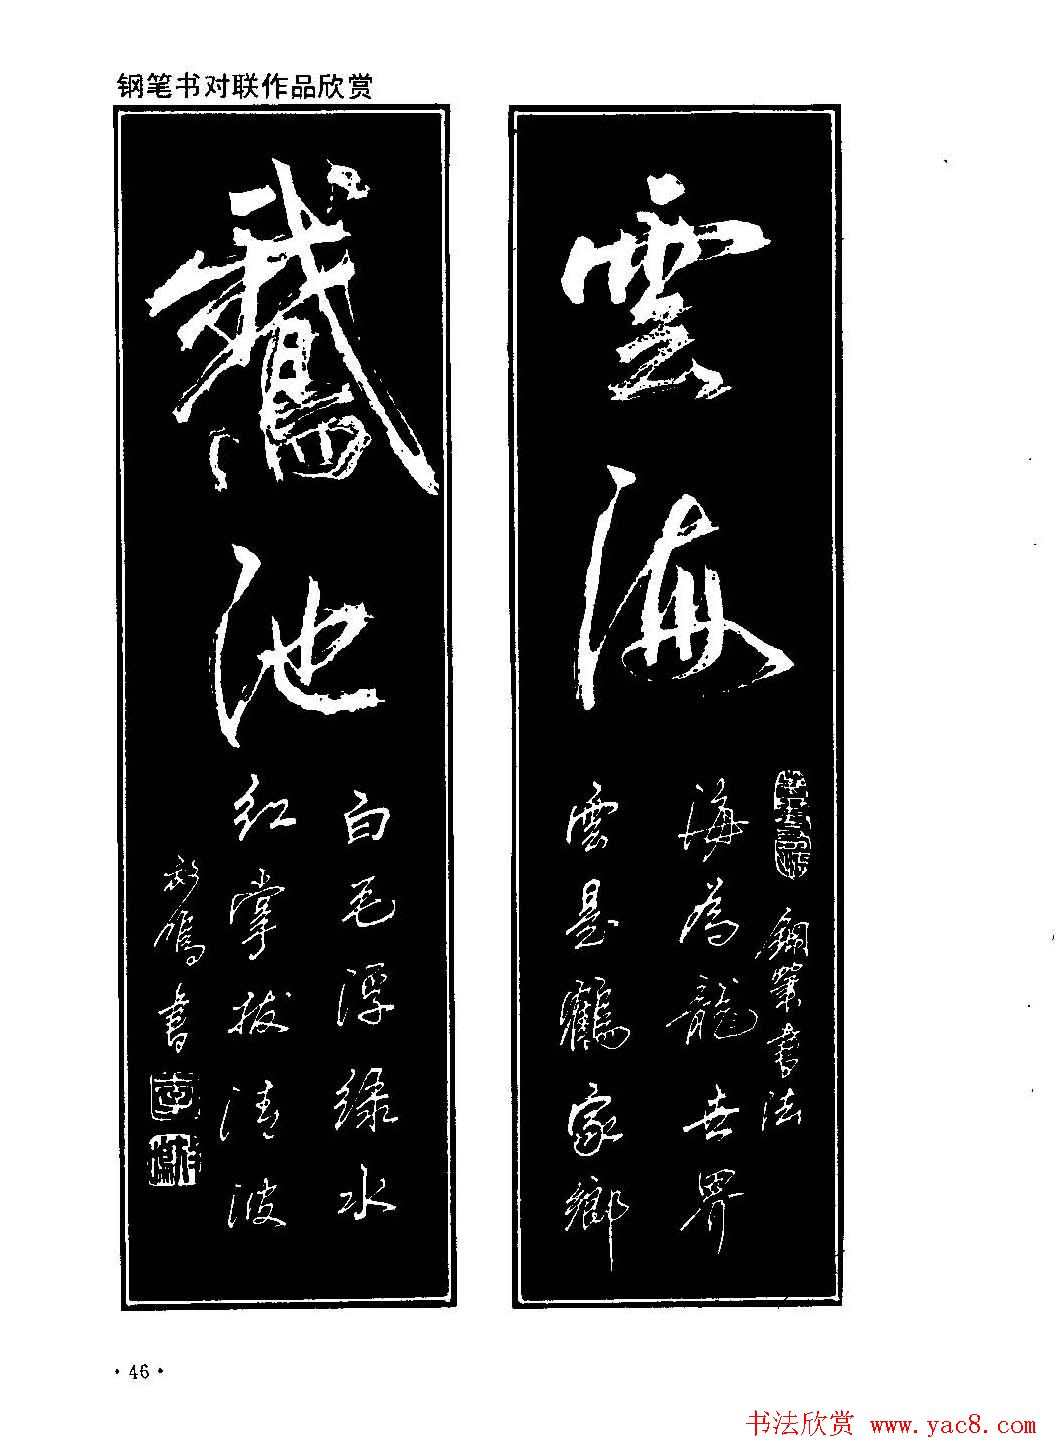 钢笔书对联作品欣赏
雲海
钢笔書法
海為龍世界
雲是鶴家鄉
鵞池
白毛浮綠水
红掌拨清波
書
·46·
书法欣赏 www.yac8.com